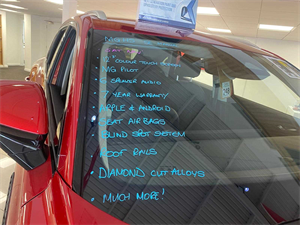 COLOUR TOUCH
MG PILOT
6 SPEAKER AUDIO
7 YEAR WARRANTY
APPLE & ANDROID
AIR BAGS
BLIND SPOT SYSTEM
ROOF RAILS
• DIAMOND CUT ALLOYS
• MUCH MORE!